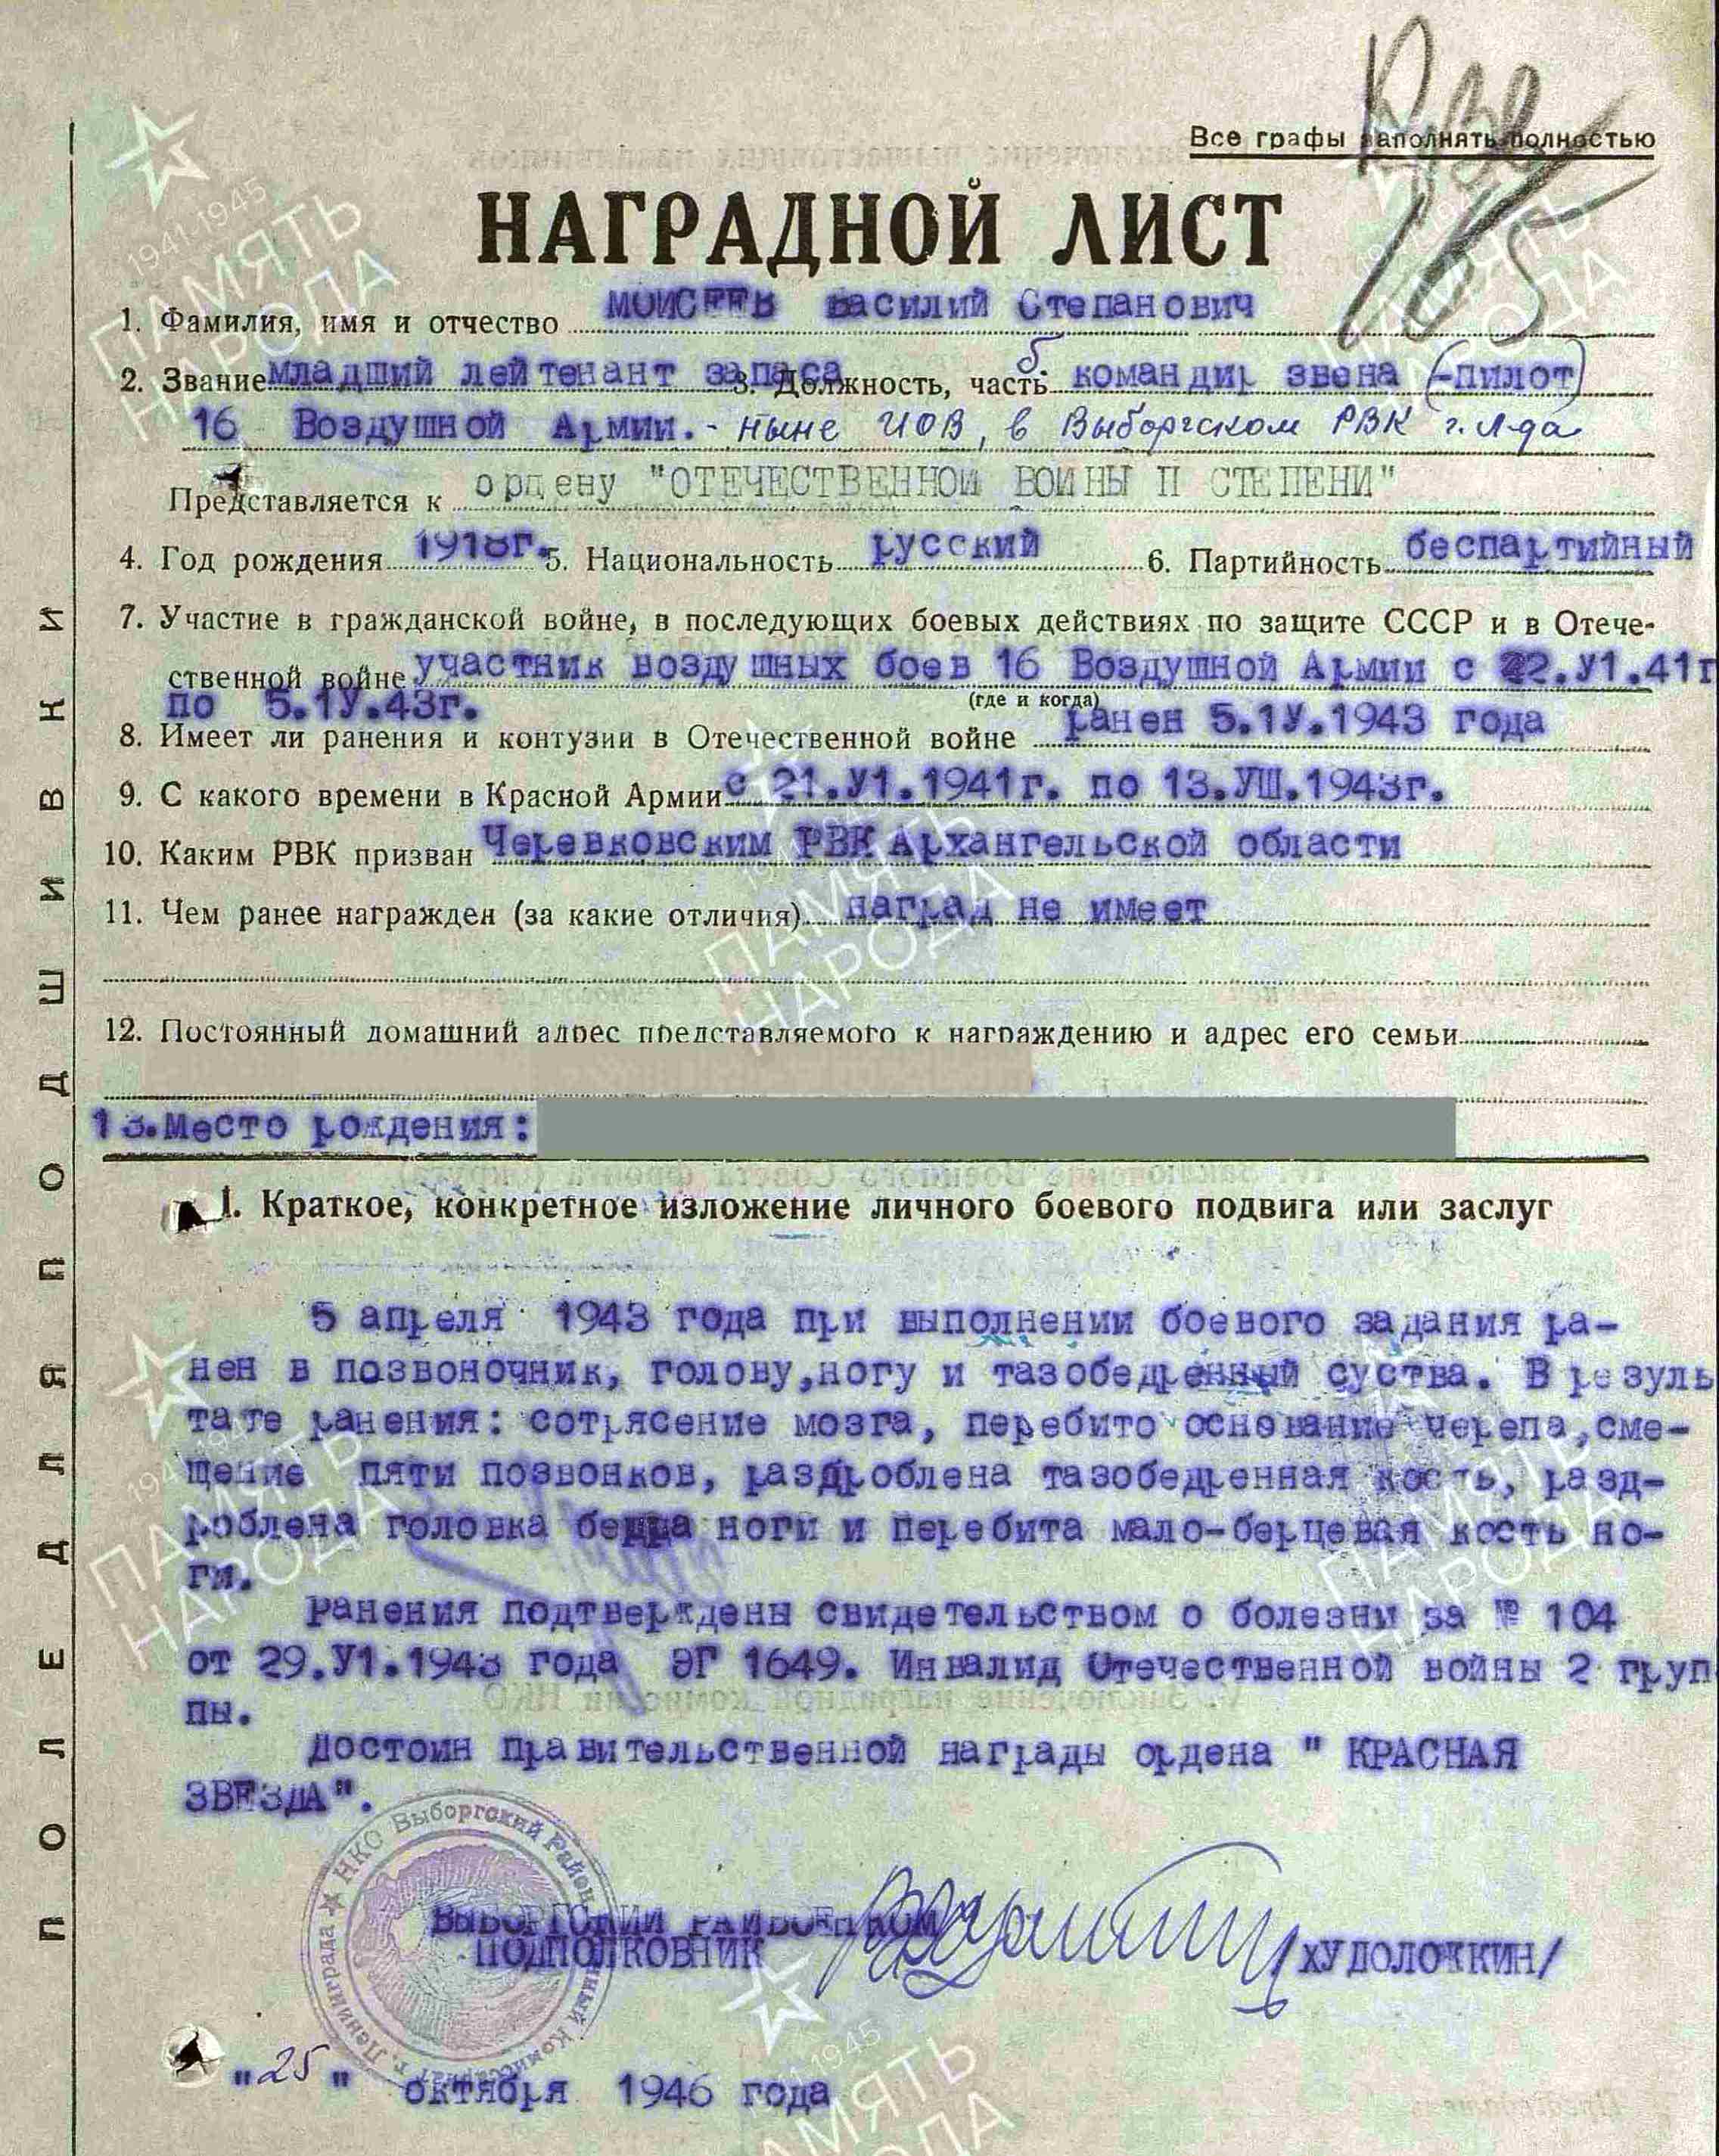 Все графы заполнять полностью
НАГРАДНОЙ ЛИСТ
1. Фамилия, имя и отчество МОИСЕЕВ Василий Степанович
2. Звание младший лейтенант запаса 3. Должность, часть б. командир звена (-пилот)
16 Воздушной Армии. - ныне ИОВ, в Выборгском РВК г. Л-да
Представляется к ордену "ОТЕЧЕСТВЕННОЙ ВОЙНЫ П СТЕПЕНИ"
4. Год рождения 1918г. 5. Национальность русский 6. Партийность беспартийный
7. Участие в гражданской войне, в последующих боевых действиях по защите СССР и в Отече-
ственной войне участник воздушных боев 16 Воздушной Армии с 22.У1.41г
(где и когда)
по 5.1У.43г.
8. Имеет ли ранения и контузии в Отечественной войне ранен 5.1У.1943 года
9. С какого времени в Красной Армии с 21.У1.1941г. по 13.УШ.1943г.
10. Каким РВК призван Черевковским РВК Архангельской области
11. Чем ранее награжден (за какие отличия) наград не имеет
12. Постоянный домашний адрес представляемого к награждению и адрес его семьи
13.Место рождения:
1. Краткое, конкретное изложение личного боевого подвига или заслуг
5 апреля 1943 года при выполнении боевого задания ра-
нен в позвоночник, голову,ногу и тазобедренный суства. В резуль
тате ранения: сотрясение мозга, перебито основание черепа,сме-
щение пяти позвонков, раздроблена тазобедренная кость, разд-
роблена головка бедра ноги и перебита мало-берцевая кость но-
ги.
Ранения подтверждены свидетельством о болезни за № 104
от 29.У1.1943 года ЭГ 1649. Инвалид Отечественной войны 2 груп
пы.
Достоин правительственной награды ордена " КРАСНАЯ
ЗВЕЗДА".
ВЫБОРГСКИЙ РАЙВОЕНКОМ
ПОДПОЛКОВНИК /ХУДОЛОЖКИН/
★ НКО Выборгский Районный Комиссариат г. Ленинграда
"25" октября 1946 года
ПОЛЕ ДЛЯ ПОДШИВКИ
1941-1945
ПАМЯТЬ
НАРОДА
1941-1945
ПАМЯТЬ
НАРОДА
ПАМЯТЬ
НАРОДА
1941-1945
ПАМЯТЬ
НАРОДА
ПАМЯТЬ
НАРОДА
1941-1945
ПАМЯТЬ
НАРОДА